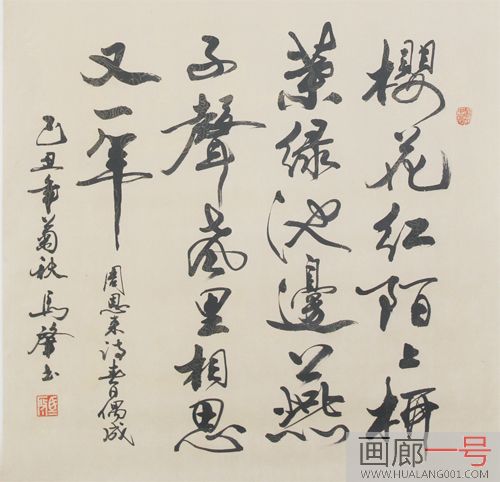 櫻花红陌上柳
葉绿池邊燕
子聲声里相思
又一年
周恩来诗春日偶成
己丑年菊秋馬肇书
画廊一号
WWW.HUALANG001.COM